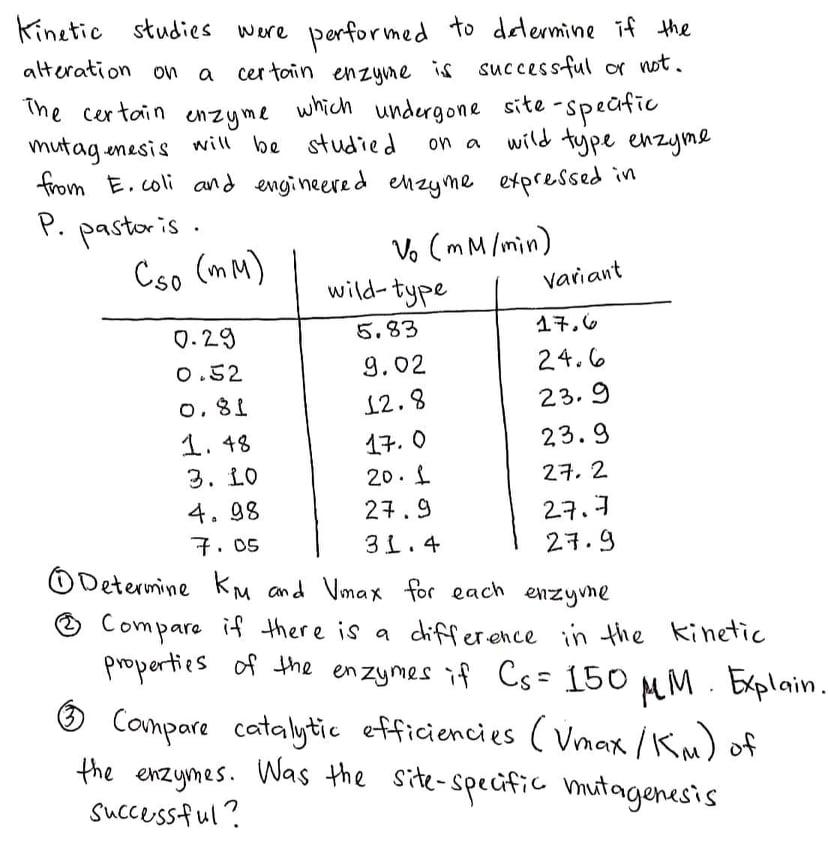 Kinetic studies were performed to determine if the
alteration on a certain enzyme is successful or not.
The certain enzyme which undergone site-specific
mutagenesis will be studied on a wild type enzyme
from E. coli and engineered enzyme expressed in
P. pastoris.
Cso (mM) Vo (mM/min)
wild-type variant
0.29 5.83 17.6
0.52 9.02 24.6
0.81 12.8 23.9
1.48 17.0 23.9
3.10 20.1 27.2
4.98 27.9 27.7
7.05 31.4 27.9
① Determine KM and Vmax for each enzyme
② Compare if there is a difference in the kinetic
properties of the enzymes if Cs = 150 μM. Explain.
③ Compare catalytic efficiencies (Vmax/KM) of
the enzymes. Was the site-specific mutagenesis
successful?